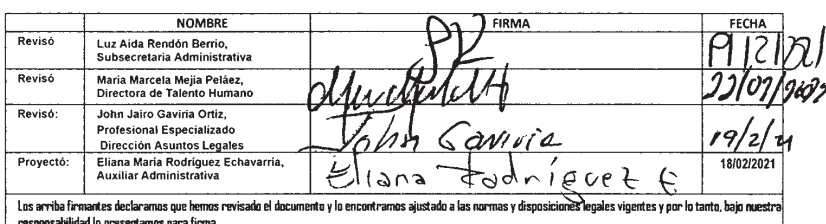 NOMBRE FIRMA FECHA
Revisó Luz Aida Rendón Berrio,
Subsecretaria Administrativa
19/2/2021
Revisó María Marcela Mejía Peláez,
Directora de Talento Humano
Revisó: John Jairo Gaviria Ortiz,
Profesional Especializado
Dirección Asuntos Legales
John Gaviria 19/2/21
Proyectó: Eliana María Rodríguez Echavarría,
Auxiliar Administrativa
Eliana Rodríguez E 18/02/2021
Los arriba firmantes declaramos que hemos revisado el documento y lo encontramos ajustado a las normas y disposiciones legales vigentes y por lo tanto, bajo nuestra
responsabilidad lo presentamos para firma.